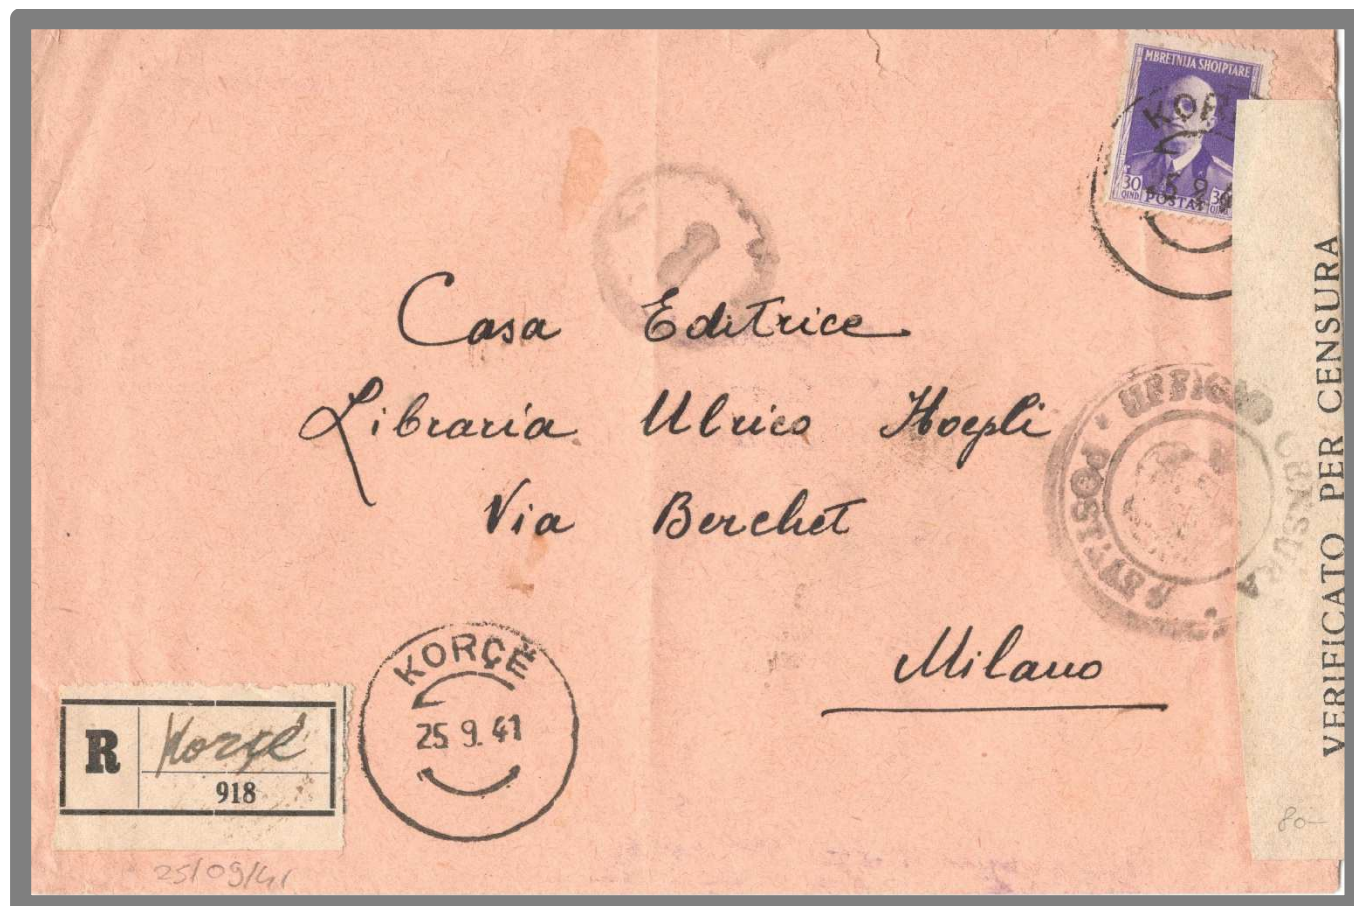 MBRETNIJA SHQIPTARE
30 QIND POSTAT 30 QIND
Casa Editrice
Libraria Ulrico Hoepli
Via Berchet
Milano
UFFICIO CENSURA POSTALE
VERIFICATO PER CENSURA
KORÇË
25 9. 41
R Korçë
918
25/09/41
80-